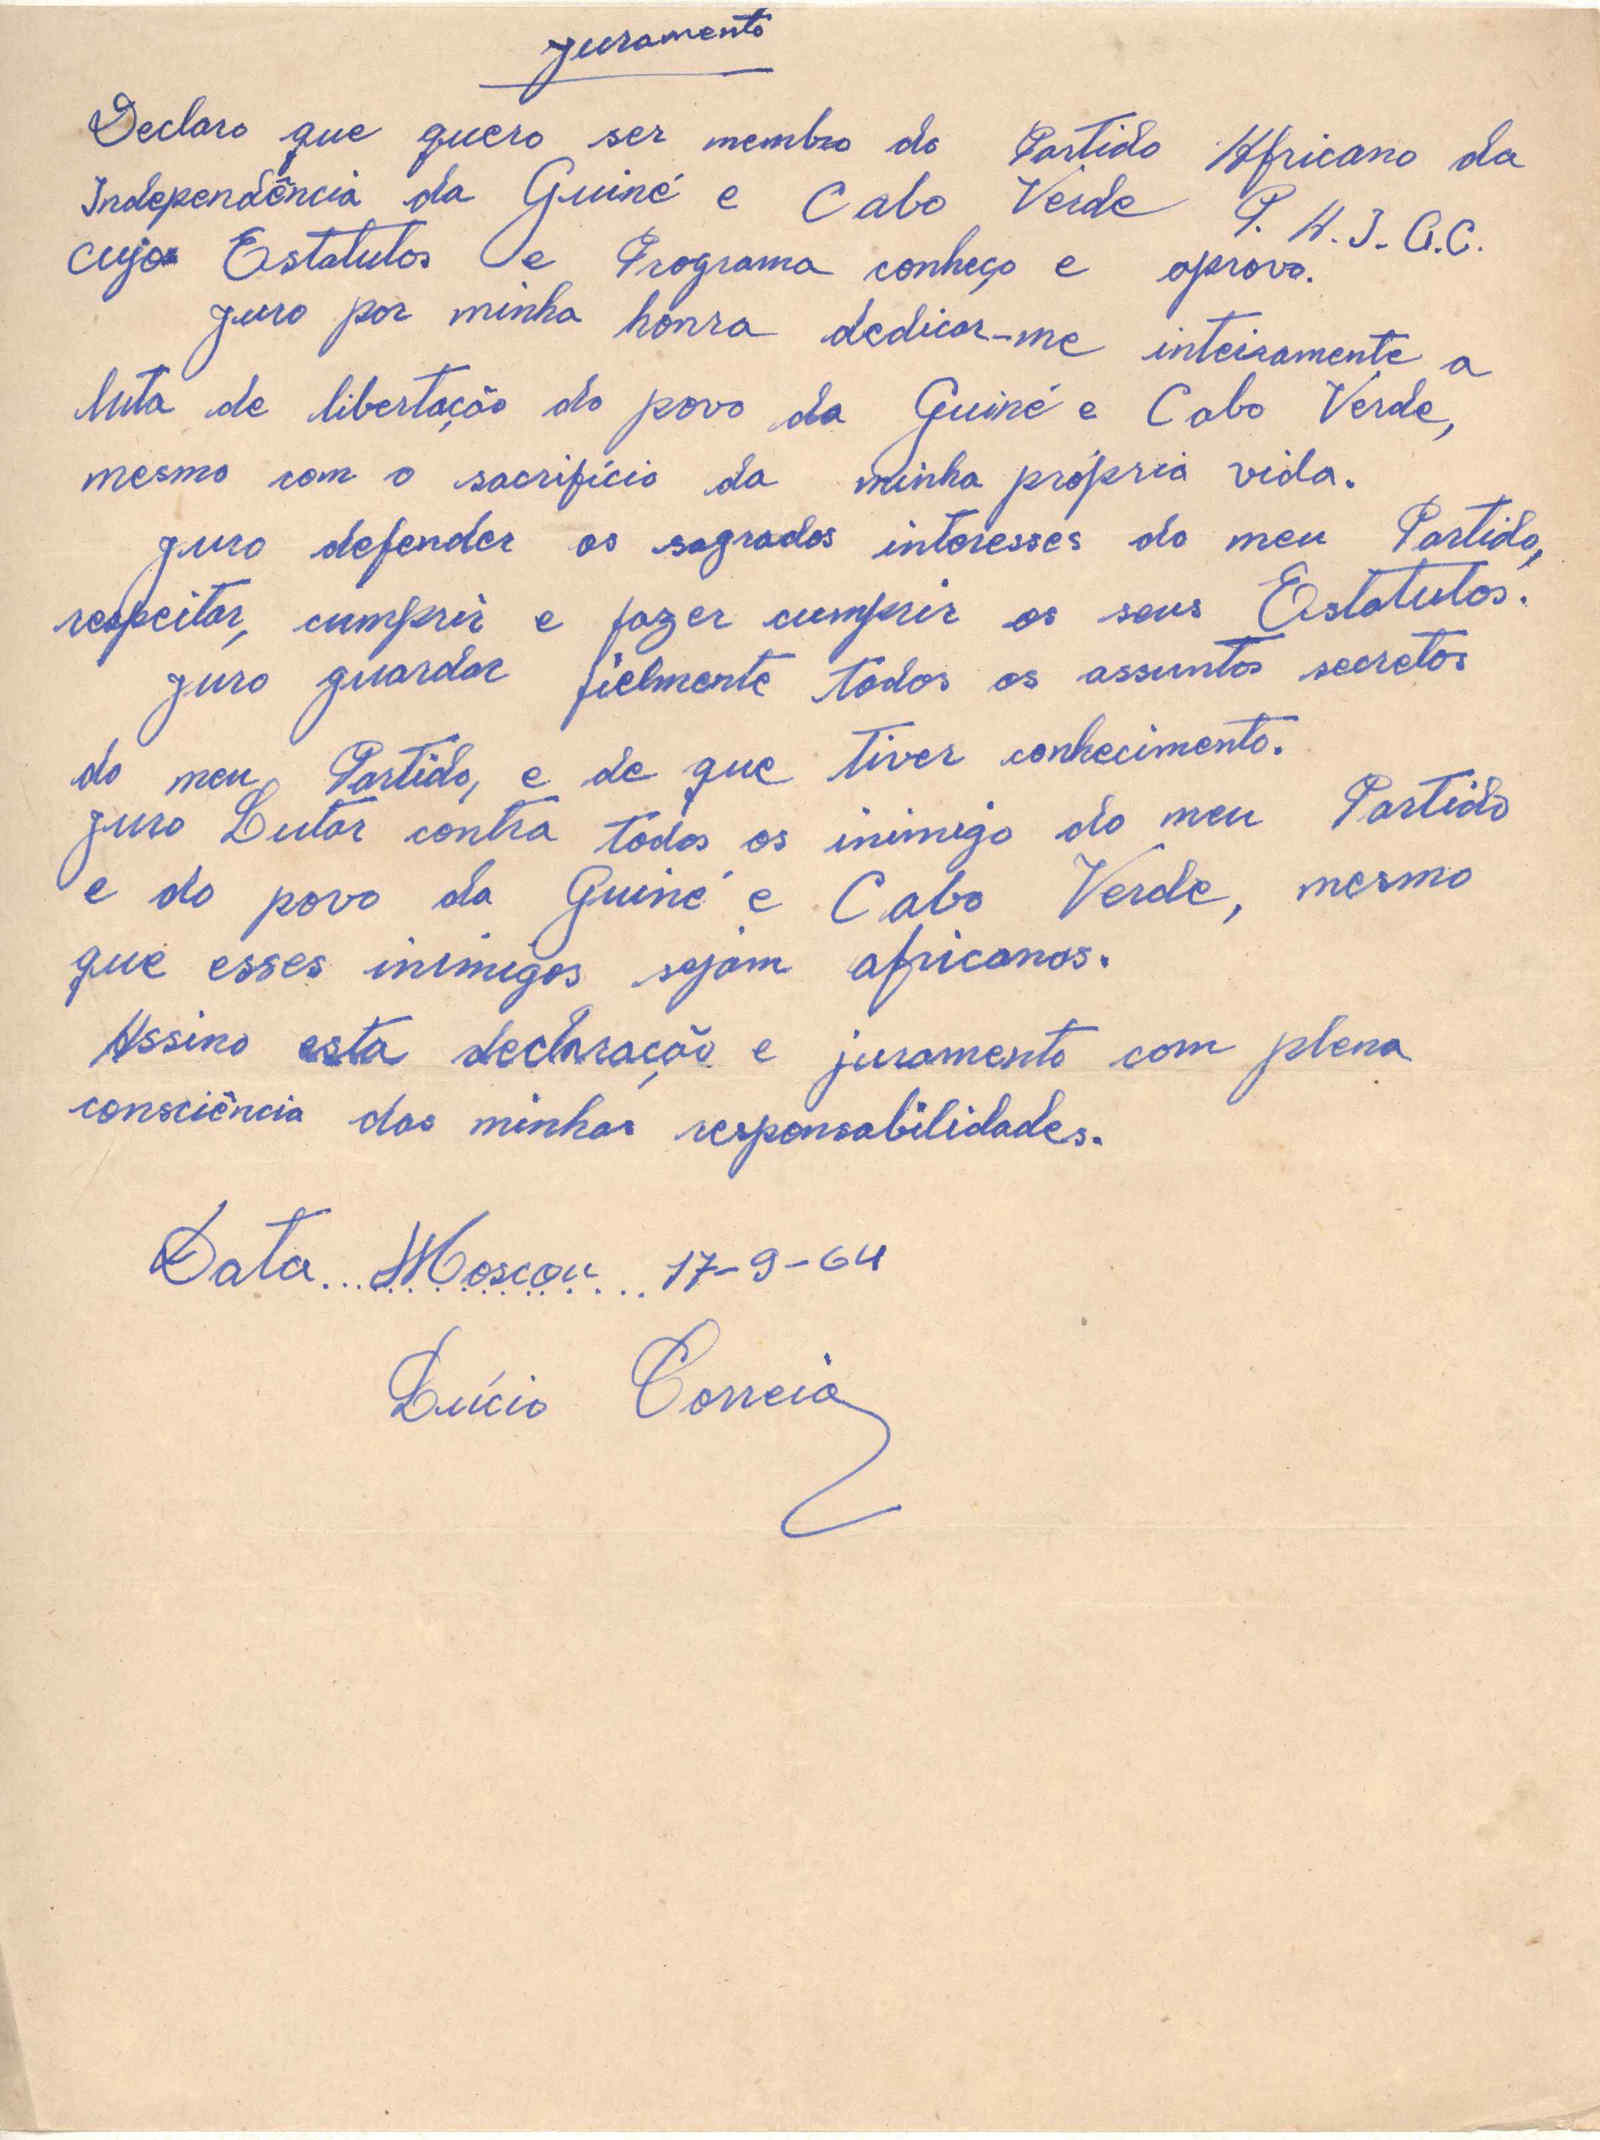 Juramento
Declaro que quero ser membro do Partido Africano da
Independência da Guiné e Cabo Verde P.A.I.G.C.
cujos Estatutos e Programa conheço e aprovo.
Juro por minha honra dedicar-me inteiramente a
luta de libertação do povo da Guiné e Cabo Verde,
mesmo com o sacrifício da minha própria vida.
Juro defender os sagrados interesses do meu Partido,
respeitar, cumprir e fazer cumprir os seus Estatutos.
Juro guardar fielmente todos os assuntos secretos
do meu Partido, e de que tiver conhecimento.
Juro Lutar contra todos os inimigo do meu Partido
e do povo da Guiné e Cabo Verde, mesmo
que esses inimigos sejam africanos.
Assino esta declaração e juramento com plena
consciência das minhas responsabilidades.
Data... Moscou ... 17-9-64
Lúcio Correia